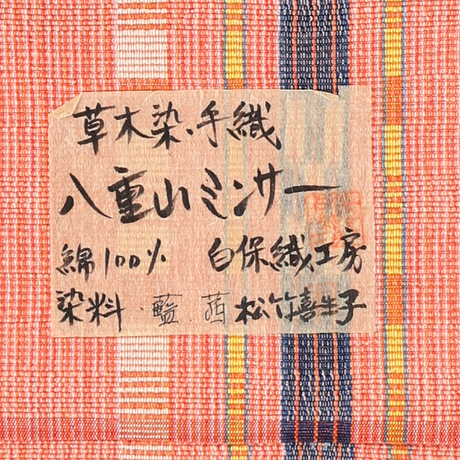 草木染.手織
八重山ミンサー
綿100% 白保織工房
染料.藍.茜 松竹喜生子